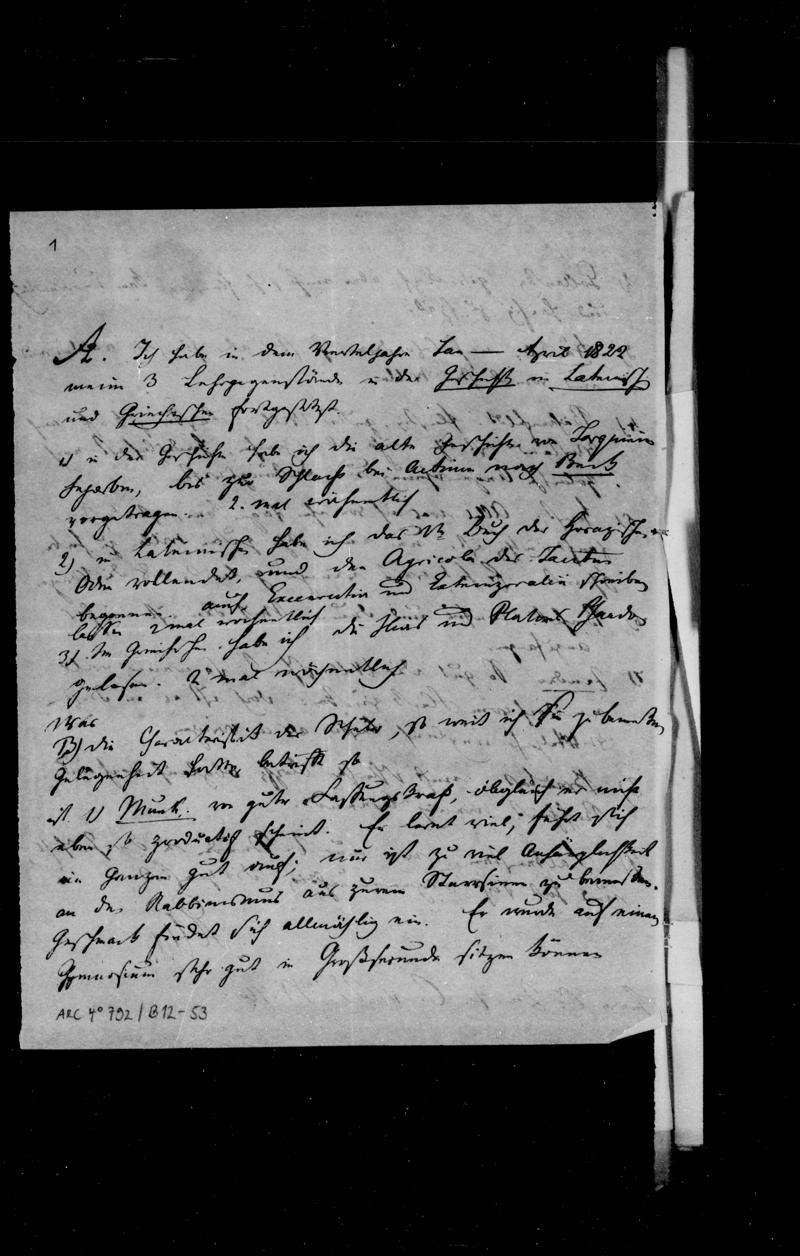 1
A. Ich habe in dem Vierteljahre Jan — April 1822
meine 3 Lehrgegenstände in der Geschichte im Lateinisch
und Griechischen fortgesetzt.
1) in der Geschichte habe ich die alte Geschichte von
bis zur Schlacht bei Actium nach Beck
vorgetragen. 2. mal wöchentlich
2) im Lateinischen habe ich das Buch der Horazischen
Oden vollendet, und den Agricola des Tacitus
begonnen. auch Exercitia und schreiben
lassen 2 mal wöchentlich
3) Im Griechischen habe ich die Ilias und Platons Phaedo
gelesen. 2 mal wöchentlich
Was
B) die Characteristik der Schüler, so weit ich sie zu bemerken
Gelegenheit hatte, betrifft so
ist 1) Munk. von guter Fassungskraft, obgleich er nicht
eben so productiv scheint. Er lernt viel, führt sich
im Ganzen gut auch; nur ist zu viel Anhänglichkeit
an den Rabbinismus aus zu Starrsinn zu bemerken.
Geschmack findet sich allmählig ein. Er wurde auf einem
Gymnasium sehr gut in Großsecunda sitzen können
ARC 4° 792 / B12-53